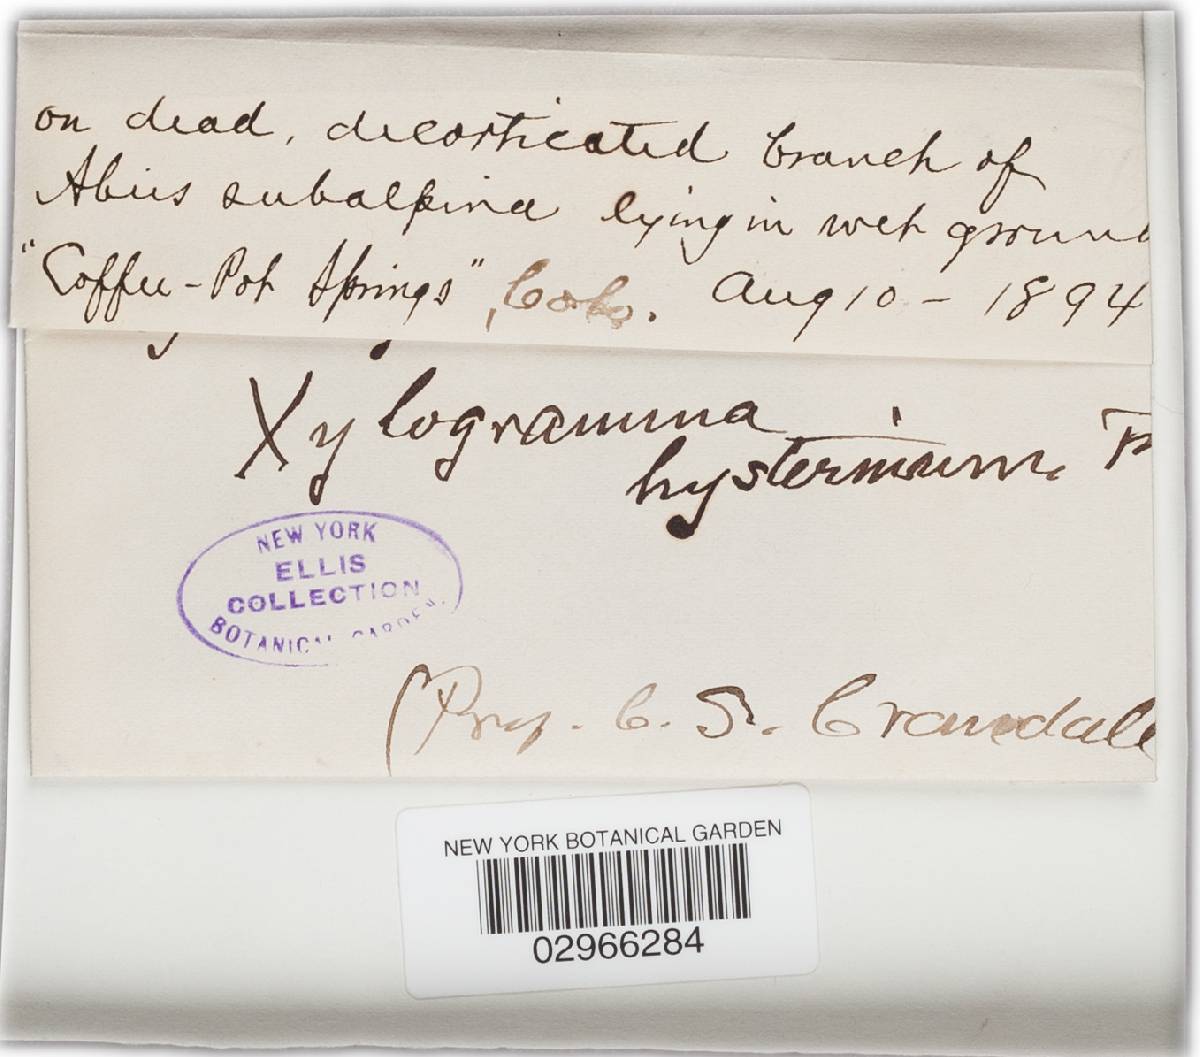 on dead, decorticated branch of
Abies subalpina lying in wet ground
"Coffee-Pot Springs", Colo. Aug 10 - 1894
Xylogramma
hysterinum.
NEW YORK
ELLIS
COLLECTION
BOTANICAL GARDEN.
(Prof. C. S. Crandall
NEW YORK BOTANICAL GARDEN
02966284